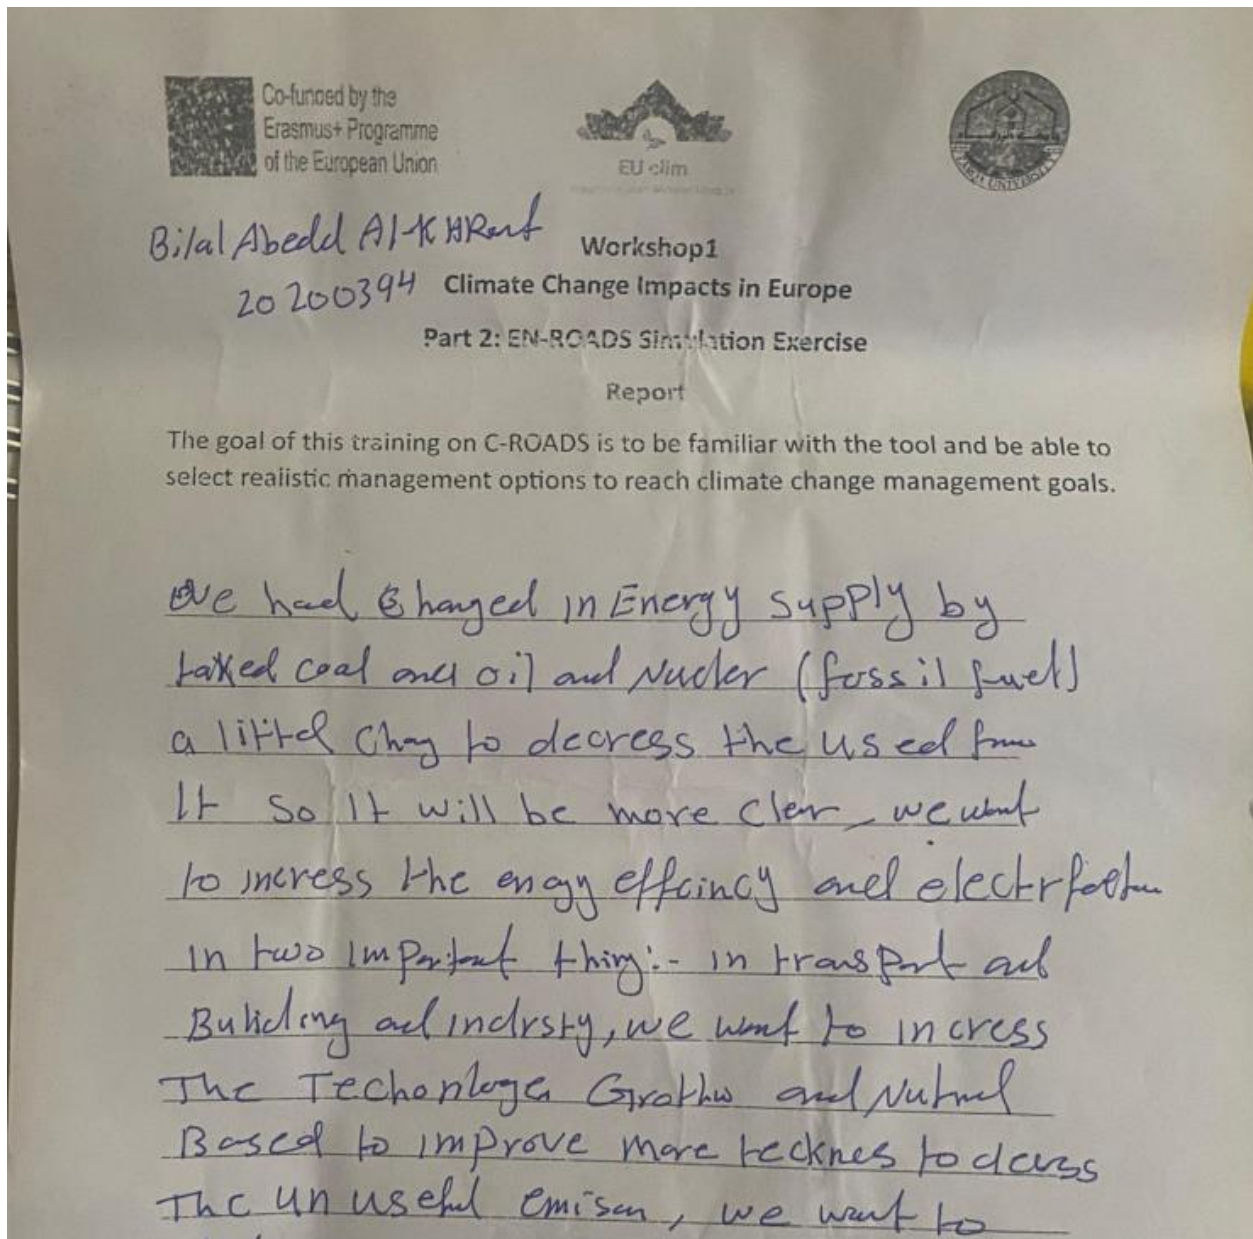 Co-funded by the
Erasmus+ Programme
of the European Union
EU clim
ZARQA UNIVERSITY
Bilal Abedd Al-
20200394
Workshop1
Climate Change Impacts in Europe
Part 2: EN-ROADS Simulation Exercise
Report
The goal of this training on C-ROADS is to be familiar with the tool and be able to
select realistic management options to reach climate change management goals.
We had Changed in Energy supply by
taxed coal and oil and Nucler (fossil fuel)
a littel to decress the used from
It so It will be more clen, we want
to incress the and
in two important thing:- in transport and
and we want to incress
The and
Based to improve more to
The un useful we want to